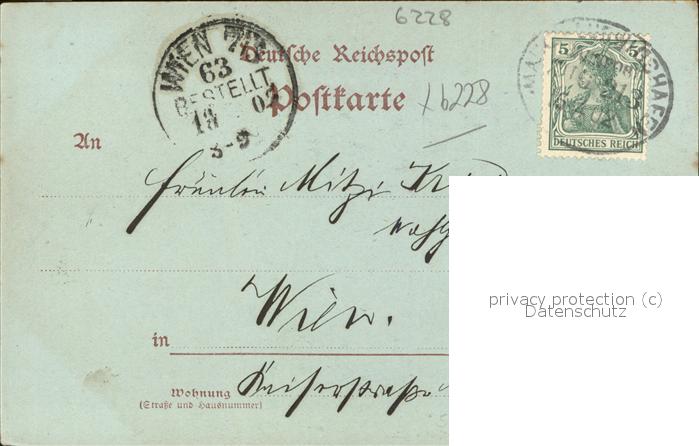 6228
WIEN
63
BESTELLT
18 02
3-9
Deutsche Reichspost
Postkarte
6228
5 5
DEUTSCHES REICH
An
Fräulein Mitzi
Wien.
in
Kaiserstraße
Wohnung
(Straße und Hausnummer)
privacy protection (c)
Datenschutz